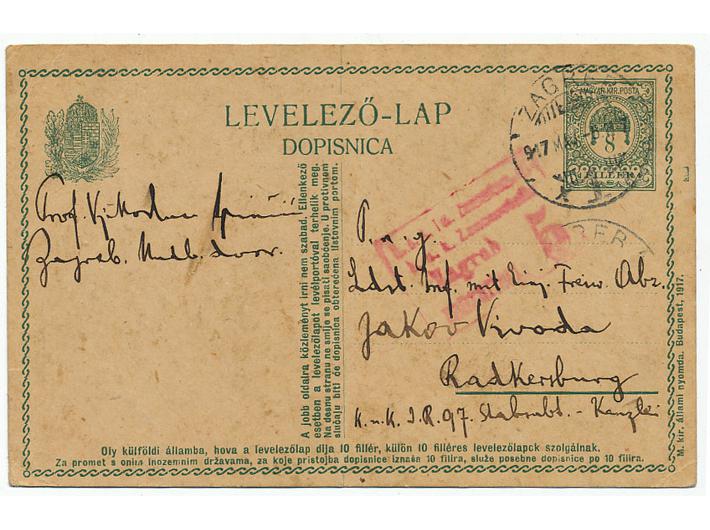 LEVELEZŐ-LAP
DOPISNICA
MAGYAR KIR. POSTA
8
FILLÉR
ZAGREB
917 MAJ
Prof.
Zagreb.
A jobb oldalra közleményt irni nem szabad. Ellenkező
esetben a levelezőlapot levélportóval terhelik meg.
Na desnu stranu ne smije se pisati saobćenje. U protivnom
slučaju biti će dopisnica obterećena listovnim portom.
Zagreb
P. n. g.
Ldst. Inf. mit Einj. Freiw. Abz.
Jakov Vivoda
Radkersburg
K. u. K. I. R. 97. - Kanzlei
Oly külföldi államba, hova a levelezőlap dija 10 fillér, külön 10 filléres levelezőlapok szolgálnak.
Za promet s onim inozemnim državama, za koje pristojba dopisnice iznaša 10 filira, služe posebne dopisnice po 10 filira.
M. kir. állami nyomda. Budapest, 1917.